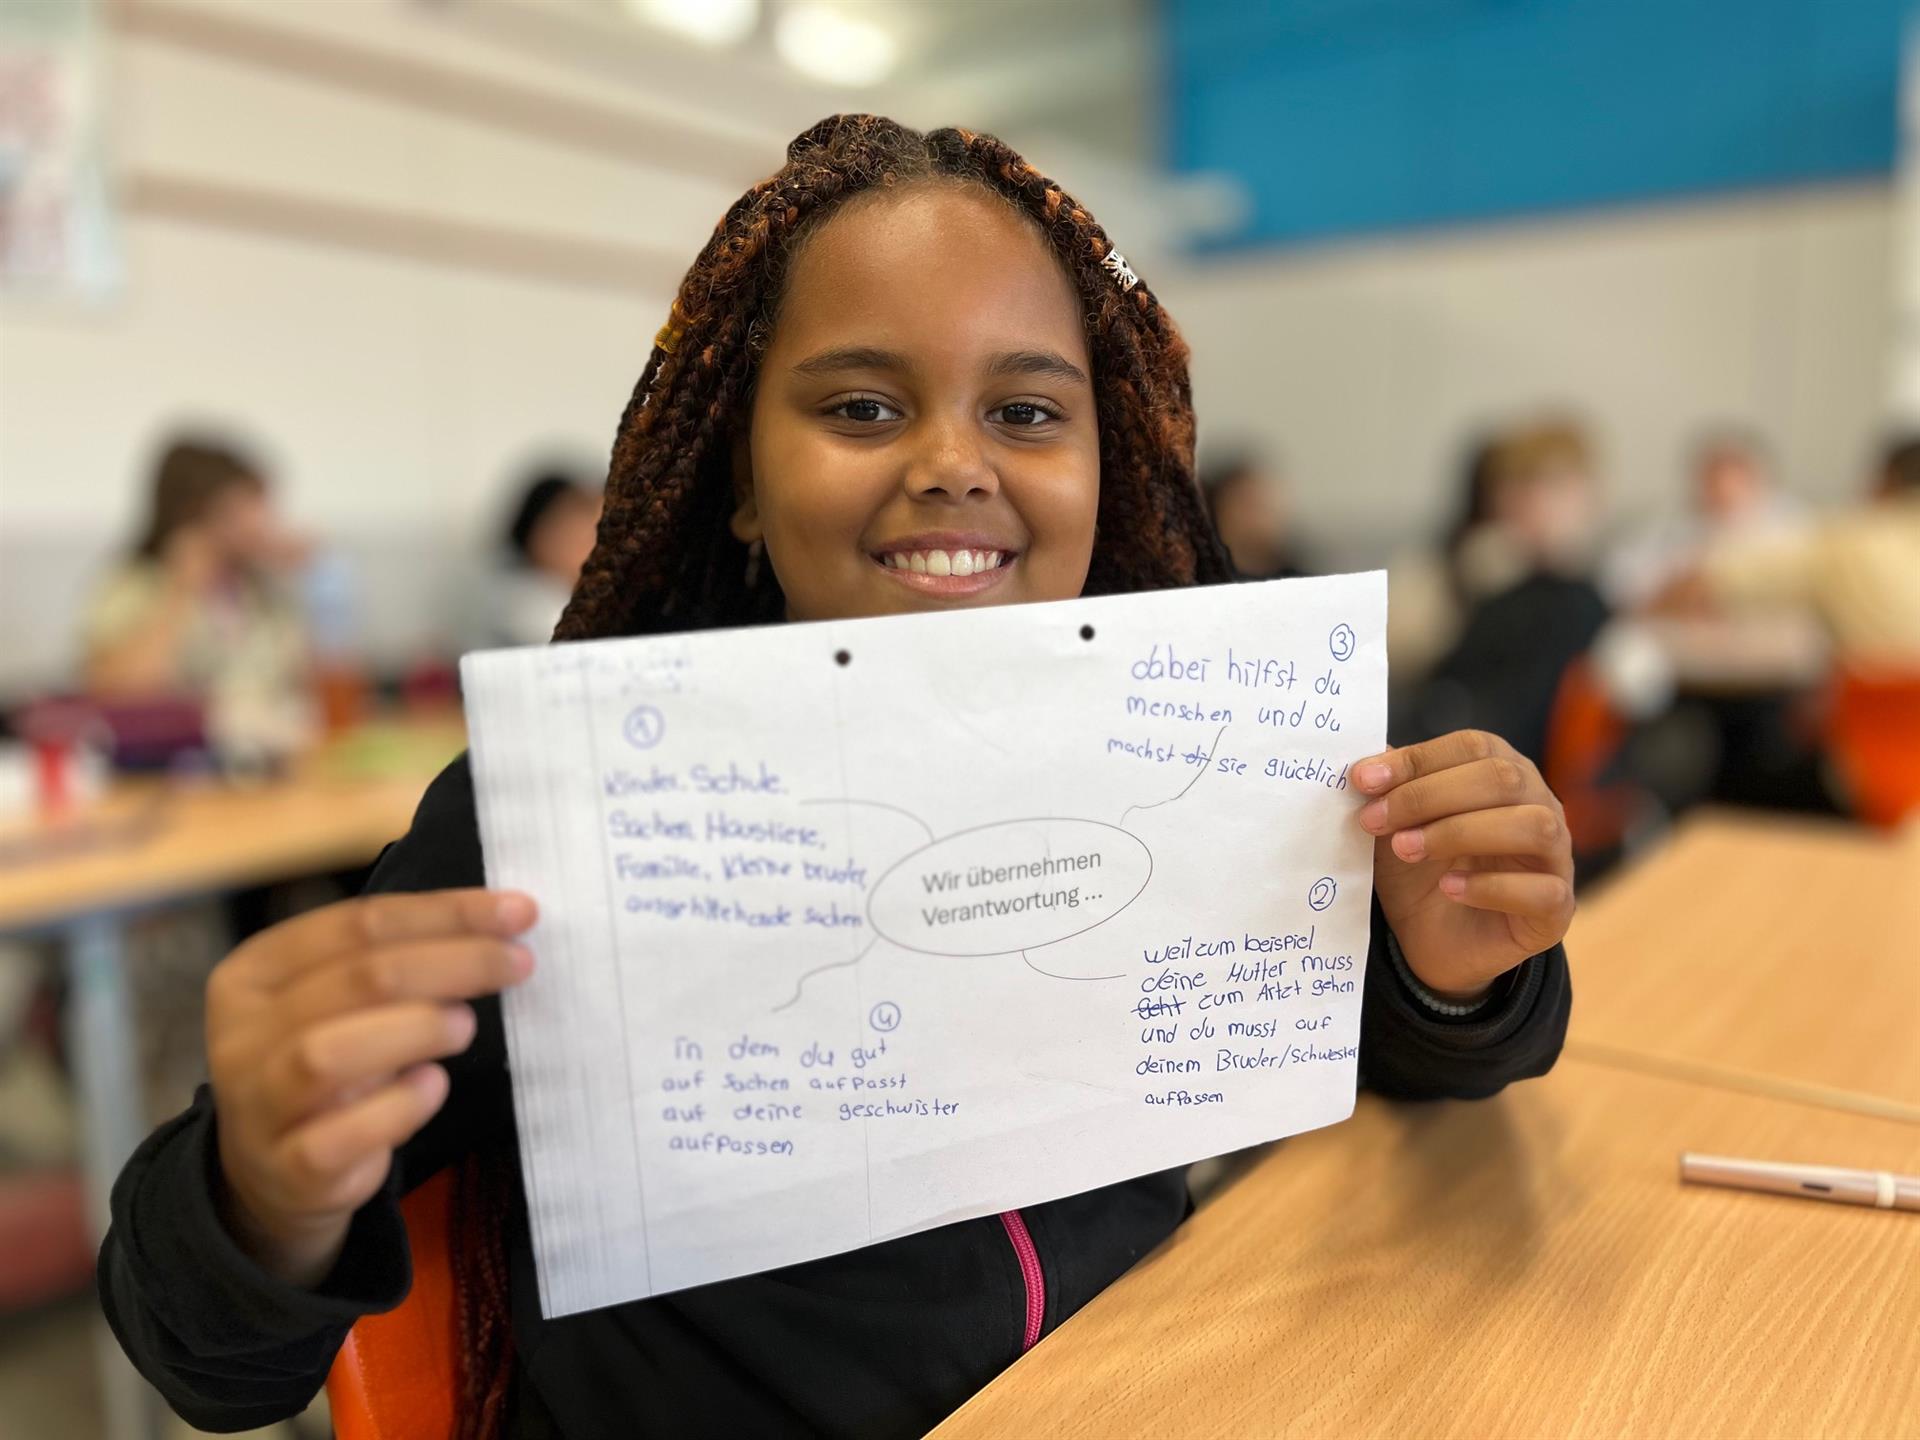 ①
Kinder, Schule,
Sachen Haustiere,
Familie, kleine bruder,
sachen
Wir übernehmen
Verantwortung ...
②
weil zum beispiel
deine Mutter muss
geht zum Artzt gehen
und du musst auf
deinem Bruder/Schwester
aufpassen
③
dabei hilfst du
menschen und du
machst di sie glücklich
④
in dem du gut
auf Sachen aufpasst
auf deine geschwister
aufpassen